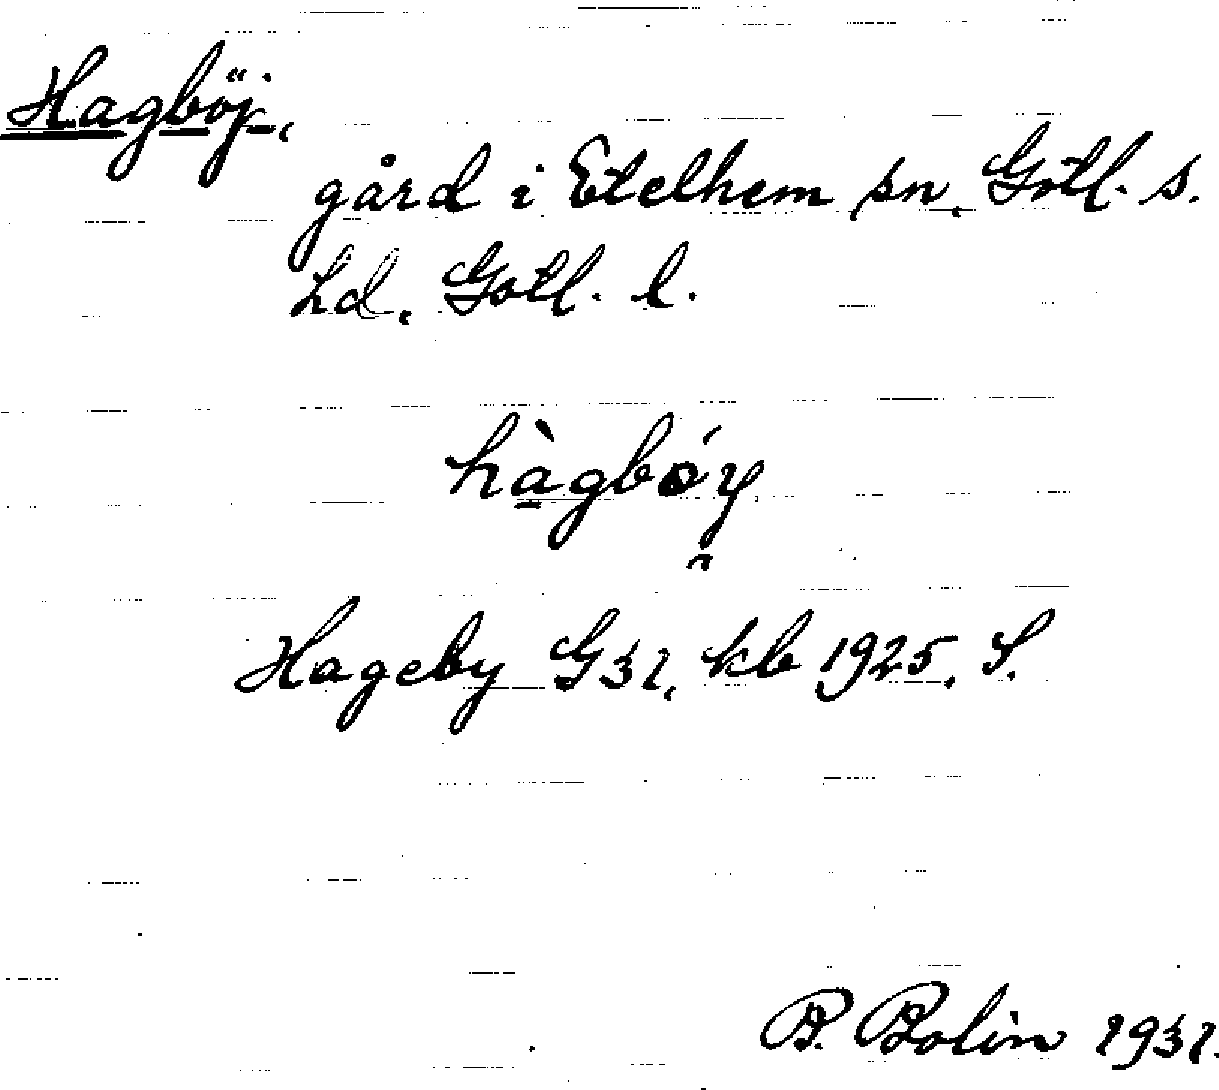 Hagböj,
gård i Etelhem sn, Gotl. s.
hd, Gotl. l.
hàgbǿy̯
Hageby G31, kb 1925, S.
B. Bolin 1931.